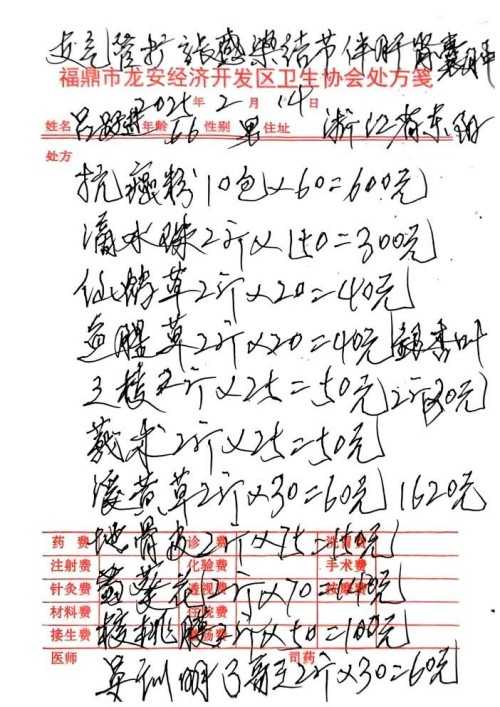 支气管扩张感染结节伴肝肾囊肿
福鼎市龙安经济开发区卫生协会处方笺
2025年2月14日
姓名 吕 年龄66性别 男 住址 浙江省东阳
处方
抗癌粉10包×60=600元
滴水珠2斤×150=300元
仙鹤草2斤×20=40元
鱼腥草2斤×20=40元 银杏叶
三棱2斤×25=50元 2斤30元
莪术2斤×25=50元
凌草2斤×30=60元 1620元
药费 地骨皮2斤×75=150元 诊费
注射费 化验费 手术费
针灸费 花2斤×70=140元 透视费 按摩费
材料费
接生费 核桃2斤×50=100元
医师 司药
吴 2斤×30=60元